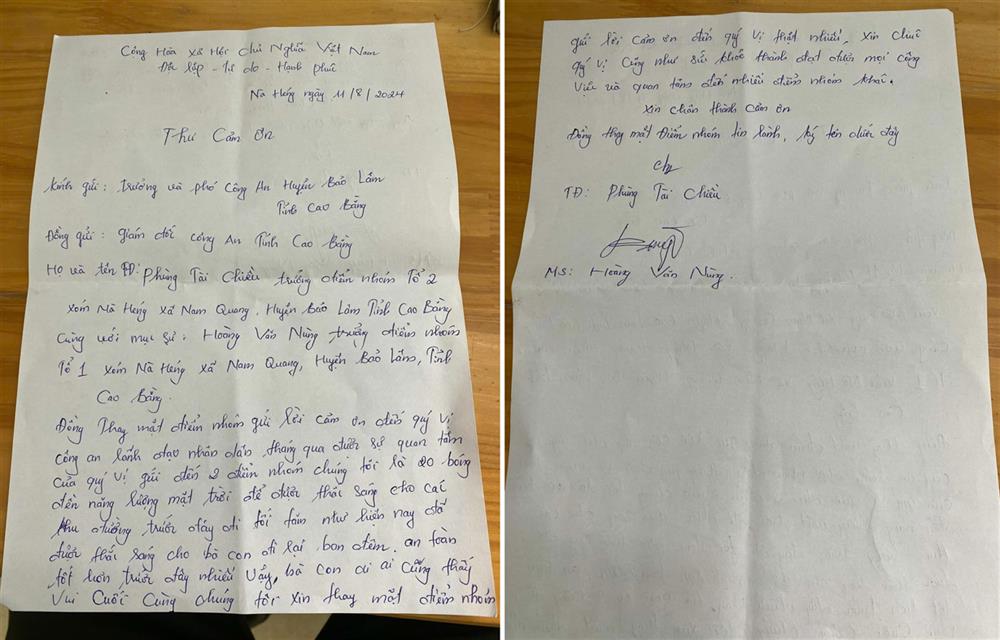 Cộng Hòa Xã Hội Chủ Nghĩa Việt Nam
Độc lập - Tự do - Hạnh phúc
Nà Héng ngày 11/8/2024
Thư Cảm Ơn
Kính gửi: trưởng và phó Công An Huyện Bảo Lâm
Tỉnh Cao Bằng
Đồng gửi: giám đốc công An Tỉnh Cao Bằng
Họ và tên TĐ: Phùng Tài Chiều trưởng điểm nhóm Tổ 2
xóm Nà Héng xã Nam Quang, Huyện Bảo Lâm Tỉnh Cao Bằng
Cùng với mục sư: Hoàng Văn Nùng trưởng điểm nhóm
Tổ 1 xóm Nà Héng xã Nam Quang, Huyện Bảo Lâm, Tỉnh
Cao Bằng.
Đồng Thay mặt điểm nhóm gửi lời cảm ơn đến quý vị
công an lãnh đạo nhân dân tháng qua được sự quan tâm
của quý vị gửi đến 2 điểm nhóm chúng tôi là 20 bóng
đèn năng lượng mặt trời để được thắp sáng cho các
khu đường trước đây đi tối tăm như hiện nay đã
được thắp sáng cho bà con đi lại ban đêm. an toàn
tốt hơn trước đây nhiều vậy, bà con ai ai cũng thấy
vui Cuối cùng chúng tôi xin thay mặt điểm nhóm
gửi lời cảm ơn đến quý vị thật nhiều, xin chúc
quý vị cũng như sức khỏe thành đạt dưới mọi công
việc và quan tâm đến nhiều điểm nhóm khác.
Xin chân thành cảm ơn
Đồng thay mặt Điểm nhóm tin lành, ký tên dưới đây
TĐ: Phùng Tài Chiều
MS: Hoàng Văn Nùng.